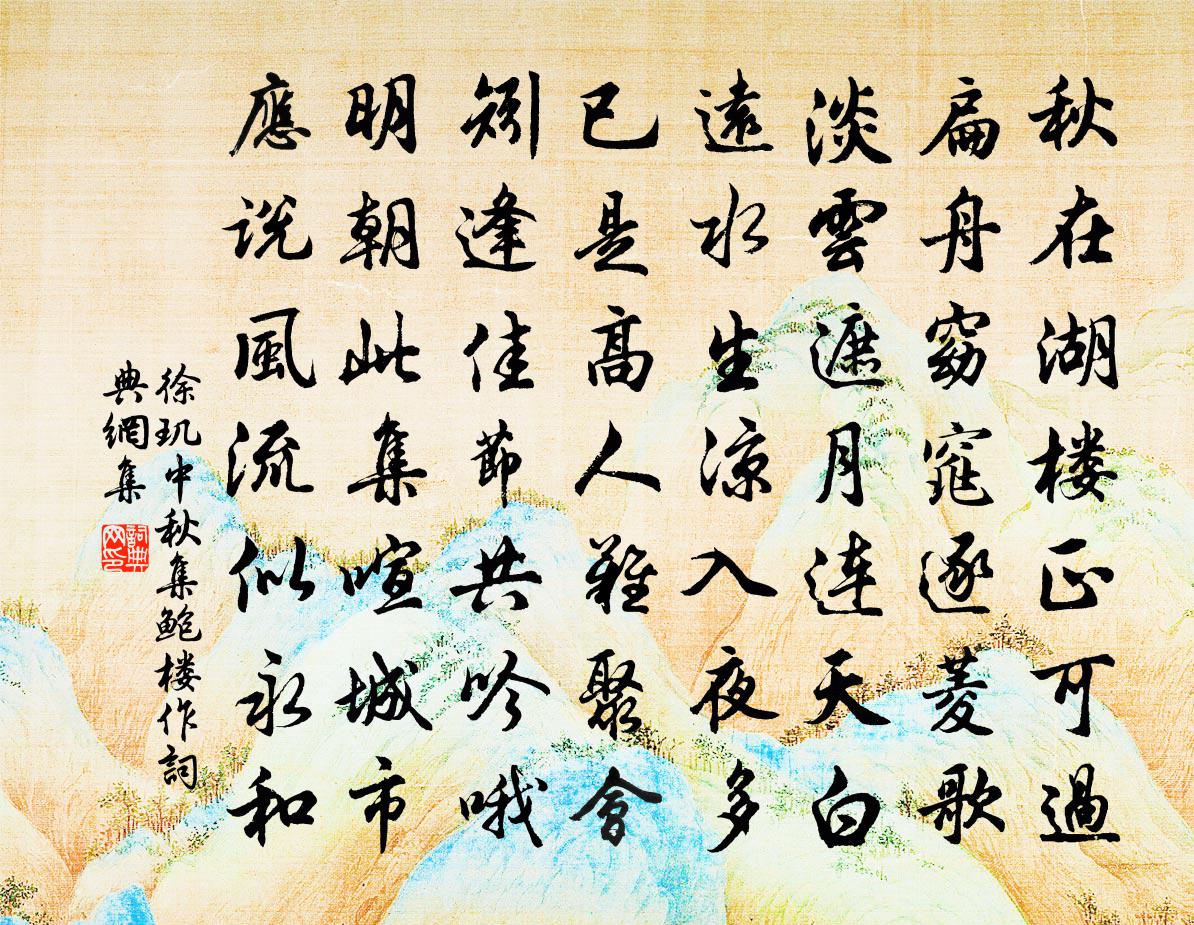 秋在湖楼正可過
扁舟窈窕逐菱歌
淡雲遮月連天白
遠水生涼入夜多
已是高人難聚會
矧逢佳節共吟哦
明朝此集喧城市
應說風流似永和
徐玑中秋集鲍楼作詞
典網集
詞典
网印